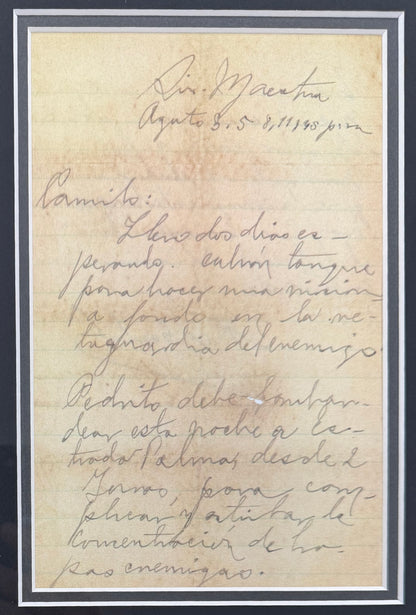 Maestra
Agosto 3, 58,
Camilo:
Llevo dos días es-
perando.
para hacer una misión
a fondo en la re-
taguardia del enemigo.
Pedrito debe bombar-
dear esta noche a Es-
trada Palma, desde 2
para com-
plicar y
concentración de tro-
pas enemigas.